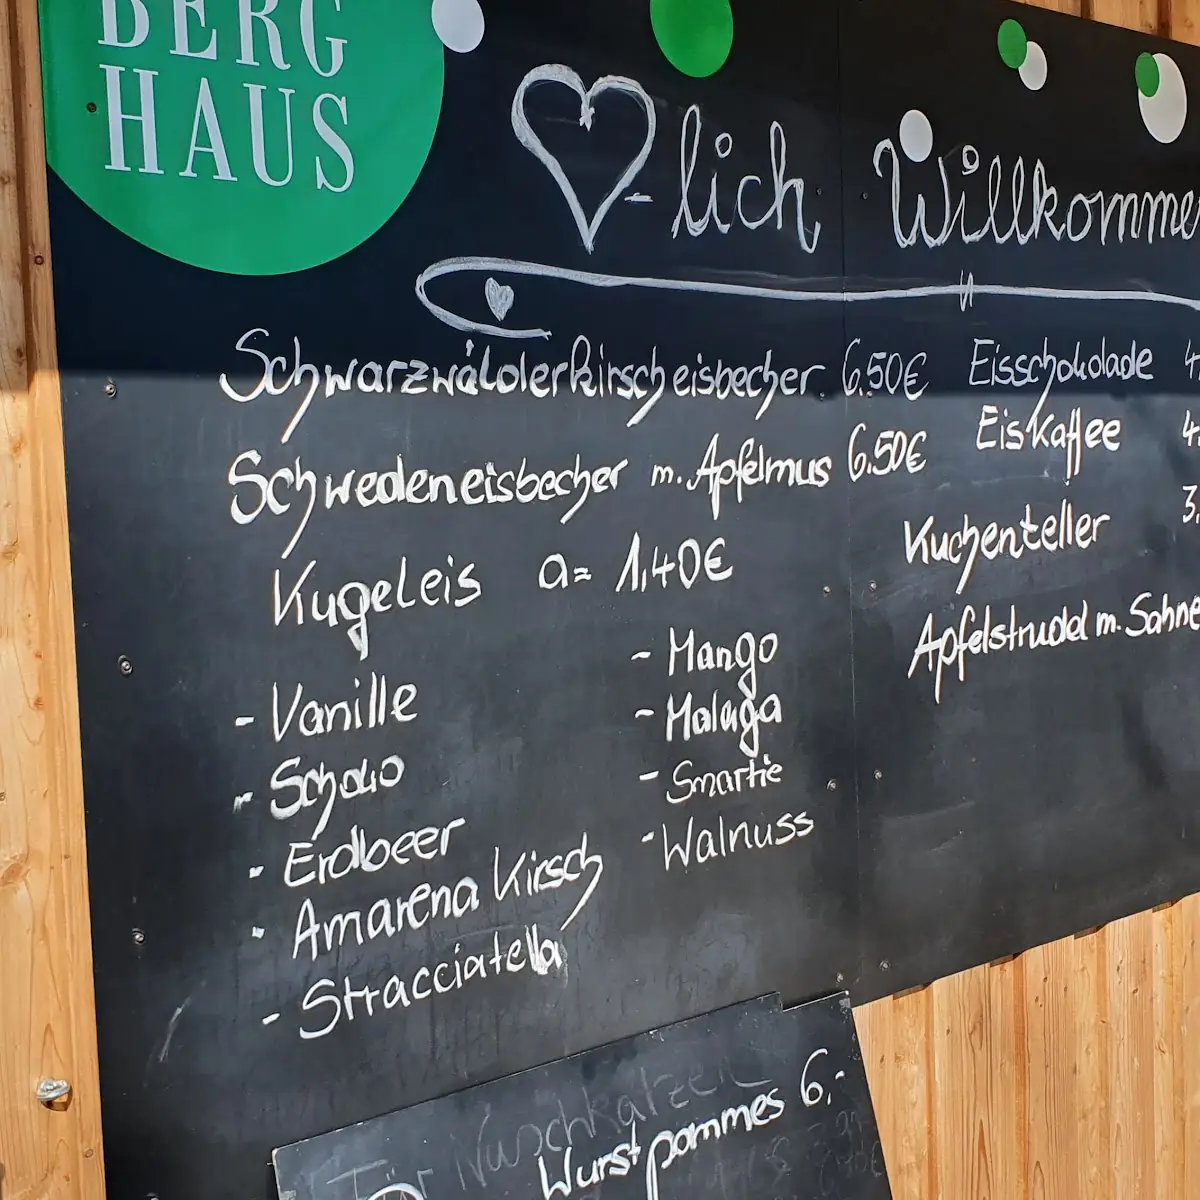 BERG
HAUS
lich Willkomme
Schwarzwälderkirscheisbecher 6.50€
Schwedeneisbecher m. Apfelmus 6.50€
Kugeleis a= 1,40€
- Vanille
- Schoko
- Erdbeer
- Amarena Kirsch
- Stracciatella
- Mango
- Malaga
- Smartie
- Walnuss
Eisschokolade 4.
Eiskaffee 4.
Kuchenteller 3.
Apfelstrudel m. Sahne
Für Naschkatzen
Wurst pommes 6,-